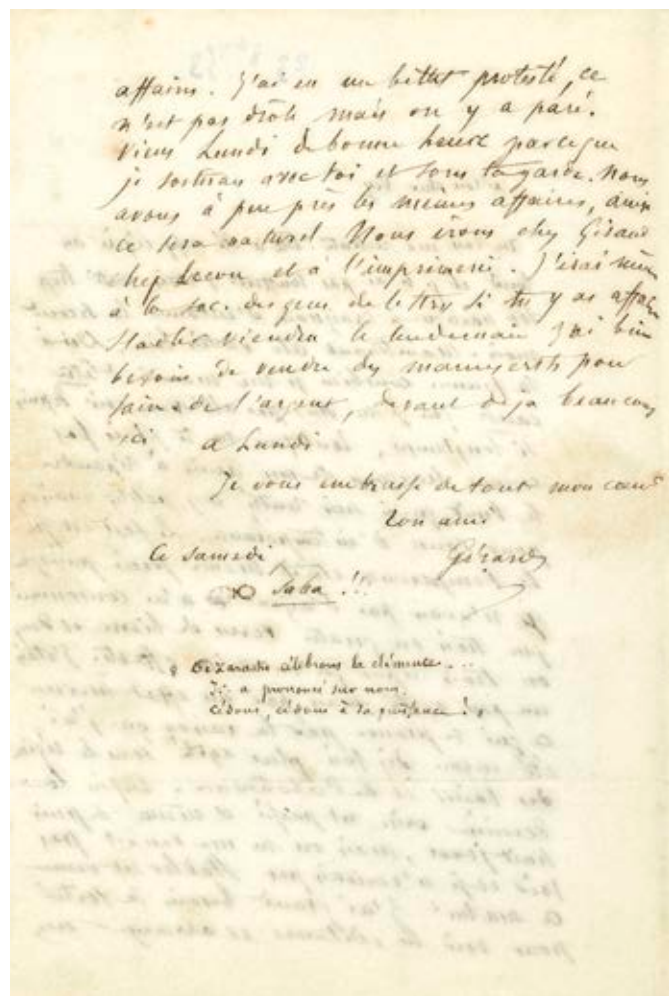 affaires. J'ai eu un billet protesté, ce
n'est pas drôle mais on y a paré.
Viens Lundi de bonne heure parceque
je sortirai avec toi et sous ta garde. Nous
avons à peu près les mêmes affaires, ainsi
ce sera naturel Nous irons chez Giraud
chez Lecou et a l'imprimerie. J'irai même
à la Soc. des gens de lettres si tu y as affaire
Stadler viendra le lendemain J'ai bien
besoin de vendre des manuscrits pour
faire de l'argent, devant déja beaucoup
ici a Lundi
Je vous embrasse de tout mon cœur
Ton ami
Ce samedi Gérard
Saba !!!
célébrons la clémence...
a prononcé sur nous
cédons, cédons à sa puissance !